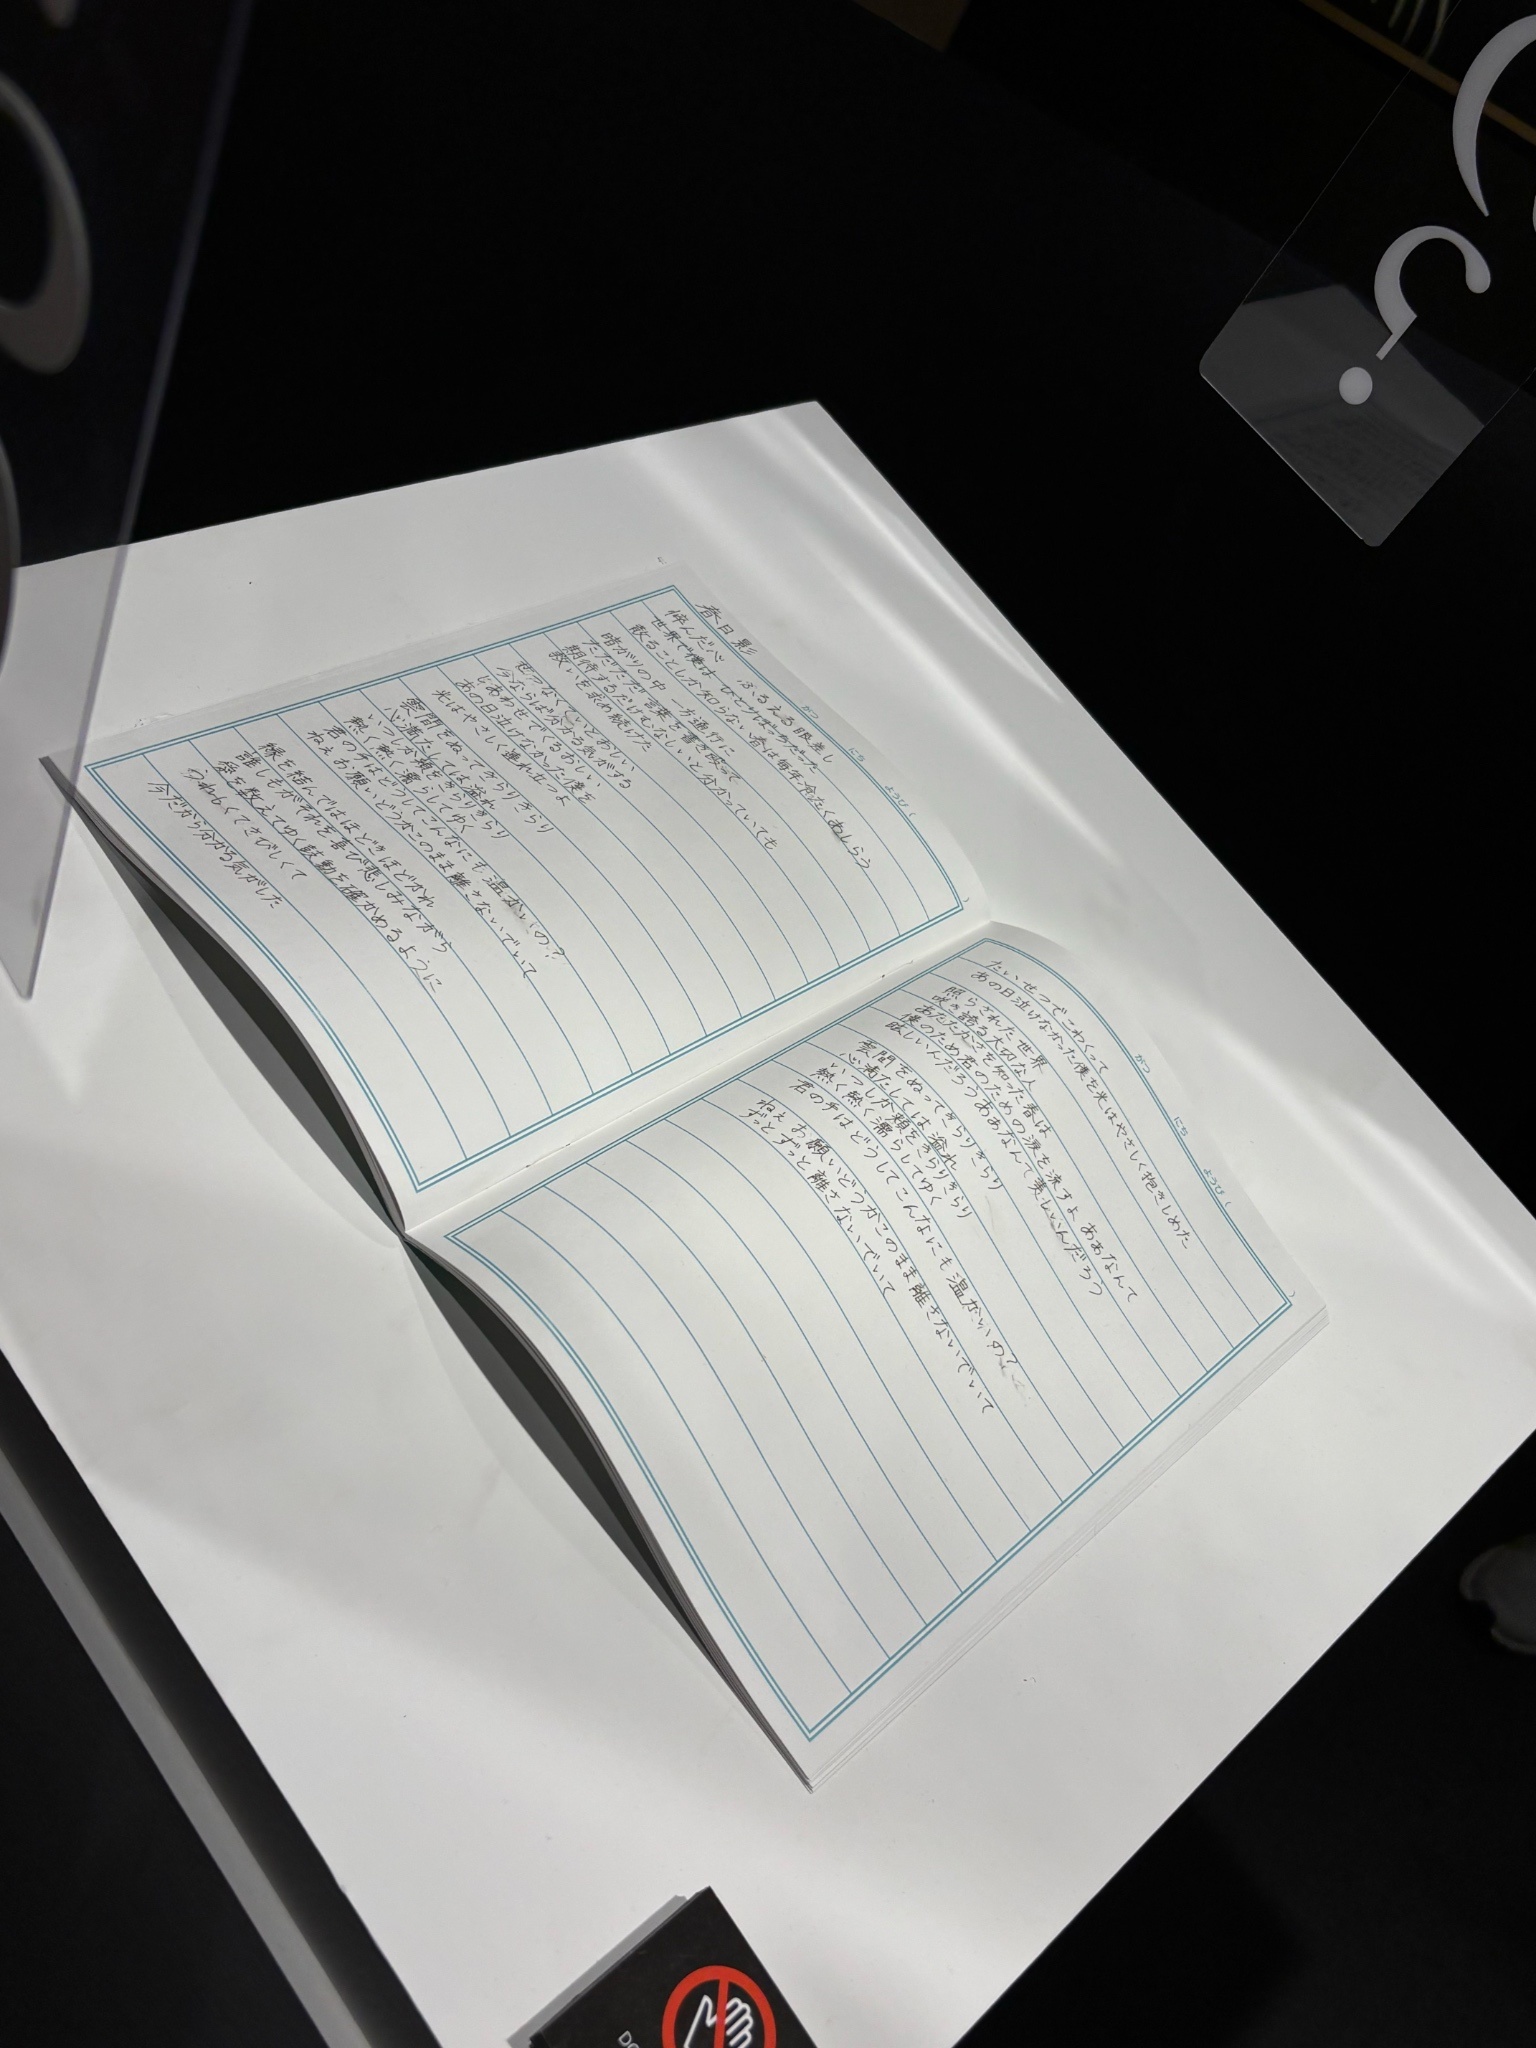 春日影
悴んだ心 ふるえる眼差し
世界で僕は ひとりぼっちだった
散ることしか知らない春は毎年冷たくあしらう
暗がりの中 一方通行に
ただただ言葉を書き殴って
期待するだけむなしいと分かっていても
救いを求め続けた
せつなくていとおしい
今ならば分かる気がする
しあわせでくるおしい
あの日泣けなかった僕を
光はやさしく連れ立つよ
雲間をぬってきらりきらり
心満たしては溢れ
いつしか頬をきらりきらり
熱く熱く濡らしてゆく
君の手はどうしてこんなにも温かいの?
ねえお願いどうかこのまま離さないでいて
縁を結んではほどきほどかれ
誰しもがそれを喜び悲しみながら
愛を数えてゆく鼓動を確かめるように
うれしくてさびしくて
今だから分かる気がした
がつ にち ようび( )
たいせつでこわくって
あの日泣けなかった僕を光はやさしく抱きしめた
照らされた世界
咲き誇る大切な人
あたたかさを知った春は
僕のため君のための涙を流すよ ああなんて
眩しいんだろうああなんて美しいんだろう
雲間をぬってきらりきらり
心満たしては溢れ
いつしか頬をきらりきらり
熱く熱く濡らしてゆく
君の手はどうしてこんなにも温かいの?
ねえお願いどうかこのまま離さないでいて
ずっとずっと離さないでいて
がつ にち ようび( )